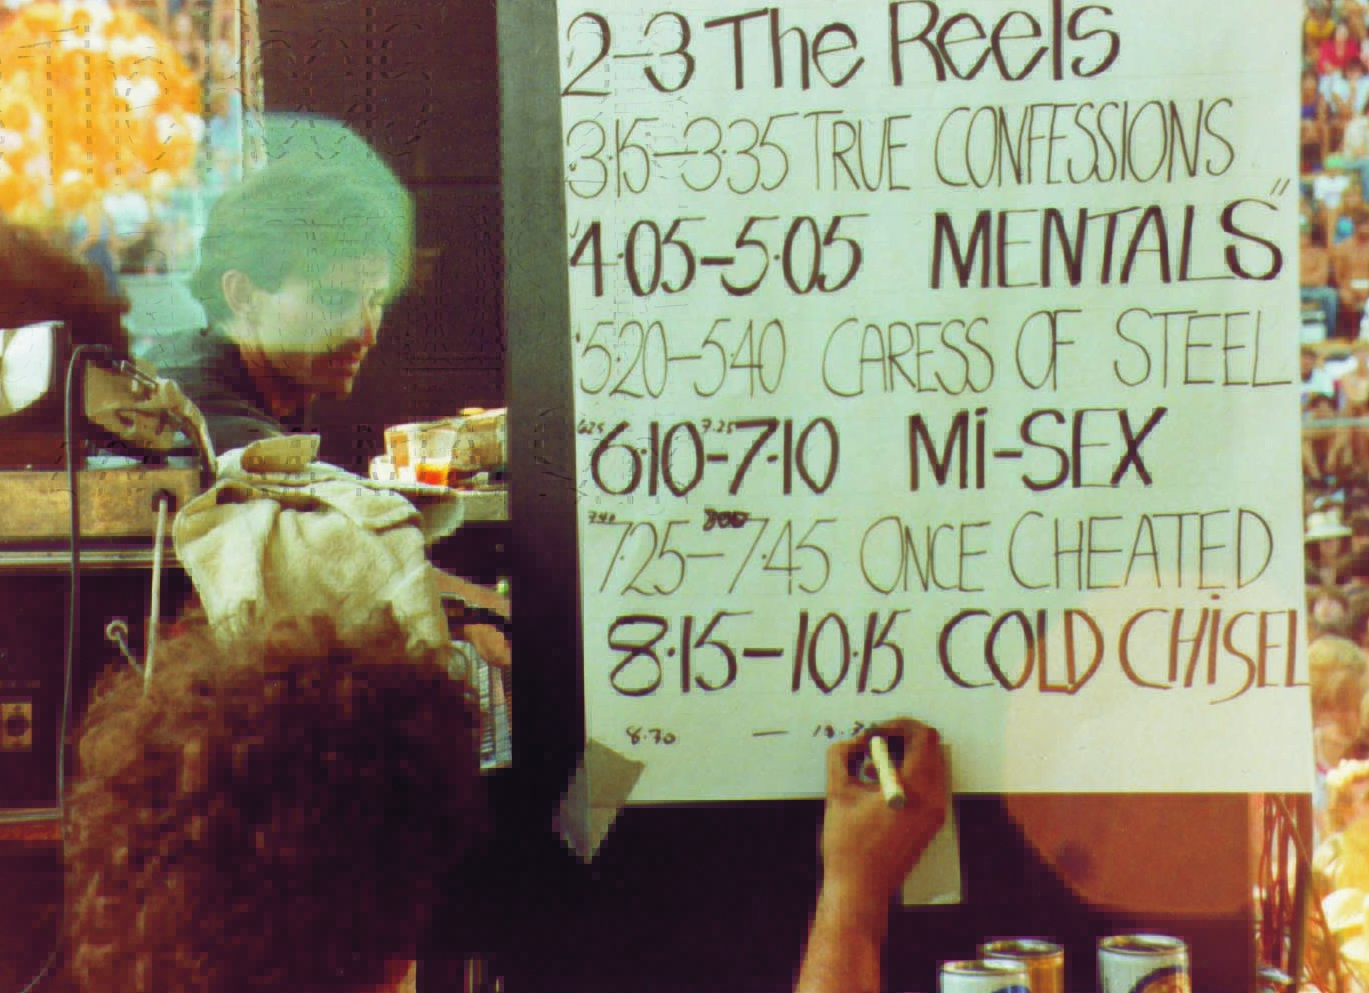 2-3 The Reels
3.15-3.35 TRUE CONFESSIONS
4.05-5.05 MENTALS"
5.20-5.40 CARESS OF STEEL
6.25 7.25
6.10-7.10 Mi-SEX
7.40
7.25-7.45 ONCE CHEATED
8.15-10.15 COLD CHiSEL
8.30 —